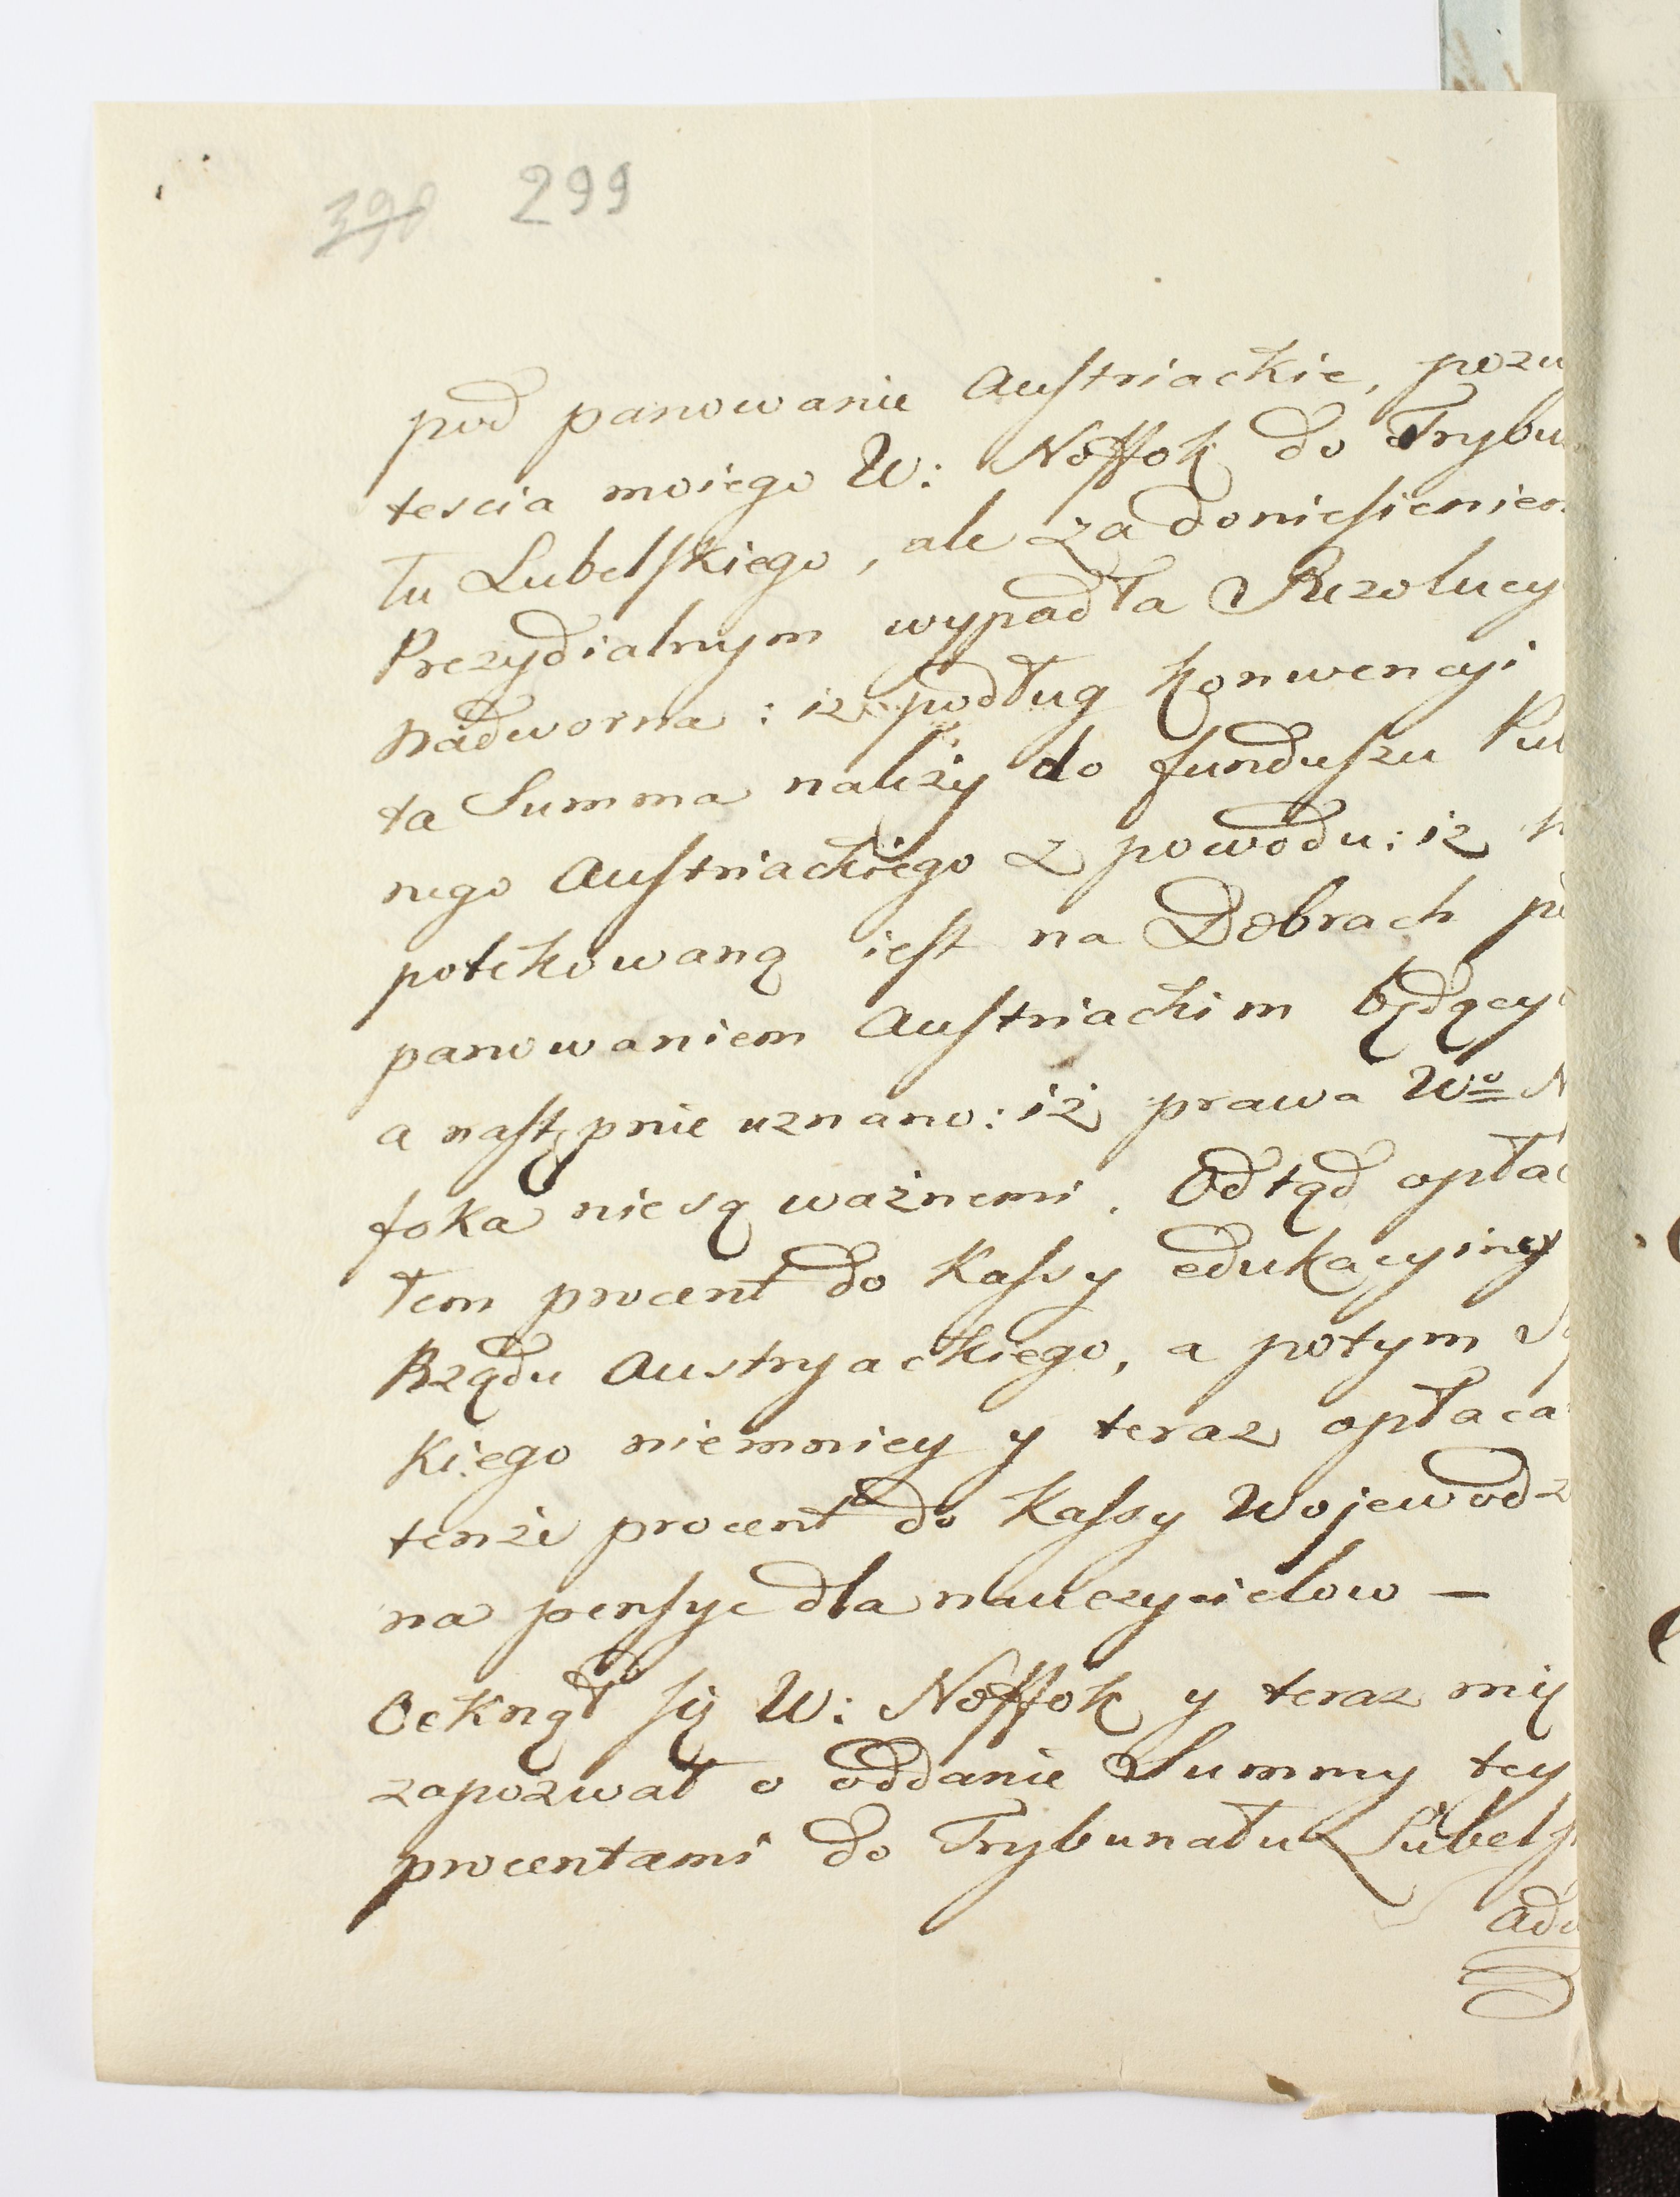 398 299
pod panowanie Austriackie, pozw
tescia moiego W: Noffok do Trybu
tu Lubelskiego, ale za doniesieniem
Prezydialnym wypadła Rezolucy
nadworna: iz podług konwencyi
ta Summa należy do funduszu Pu
nego Austriackiego z powodu: iz h
potekowaną iest na Dobrach po
panowaniem Austriackim będący
a następnie uznano: iż prawa Wo N
foka niesą ważnemi. Odtąd opłac
tem procent do Kassy edukacyiney
Rządu Austryackiego, a potym Sa
kiego niemniey y teraz opłaca
tenże procent do Kassy Wojewodz
na pensye dla nauczycielow —
Ocknął się W: Noffok y teraz mię
zapozwał o oddanie Summy tey
procentami do Trybunału Lubelsk
adw